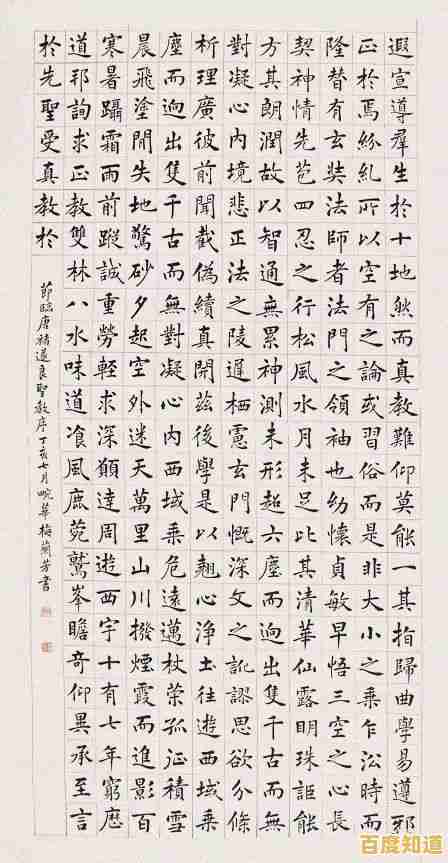 遐宣導羣生於十地然而真教難仰莫能一其指歸曲學易遵邪
正於焉紛糺所以空有之論或習俗而是非大小之乘乍沿時而
隆替有玄奘法師者法門之領袖也幼懷貞敏早悟三空之心長
契神情先苞四忍之行松風水月未足比其清華仙露明珠詎能
方其朗潤故以智通無累神測未形超六塵而迥出隻千古而無
對凝心內境悲正法之陵遲栖慮玄門慨深文之訛謬思欲分條
析理廣彼前聞截偽續真開茲後學是以翹心淨土往遊西域乘
塵而迥出隻千古而無對凝心內西域乘危遠邁杖策孤征積雪
晨飛塗閒失地驚砂夕起空外迷天萬里山川撥煙霞而進影百
寒暑躡霜而前蹤誠重勞輕求深願達周遊西宇十有七年窮歷
道邦詢求正教雙林八水味道飡風鹿菀鷲峯瞻奇仰異承至言
於先聖受真教於
節臨唐褚遂良聖教序丁亥七月畹華梅蘭芳書
百度知道